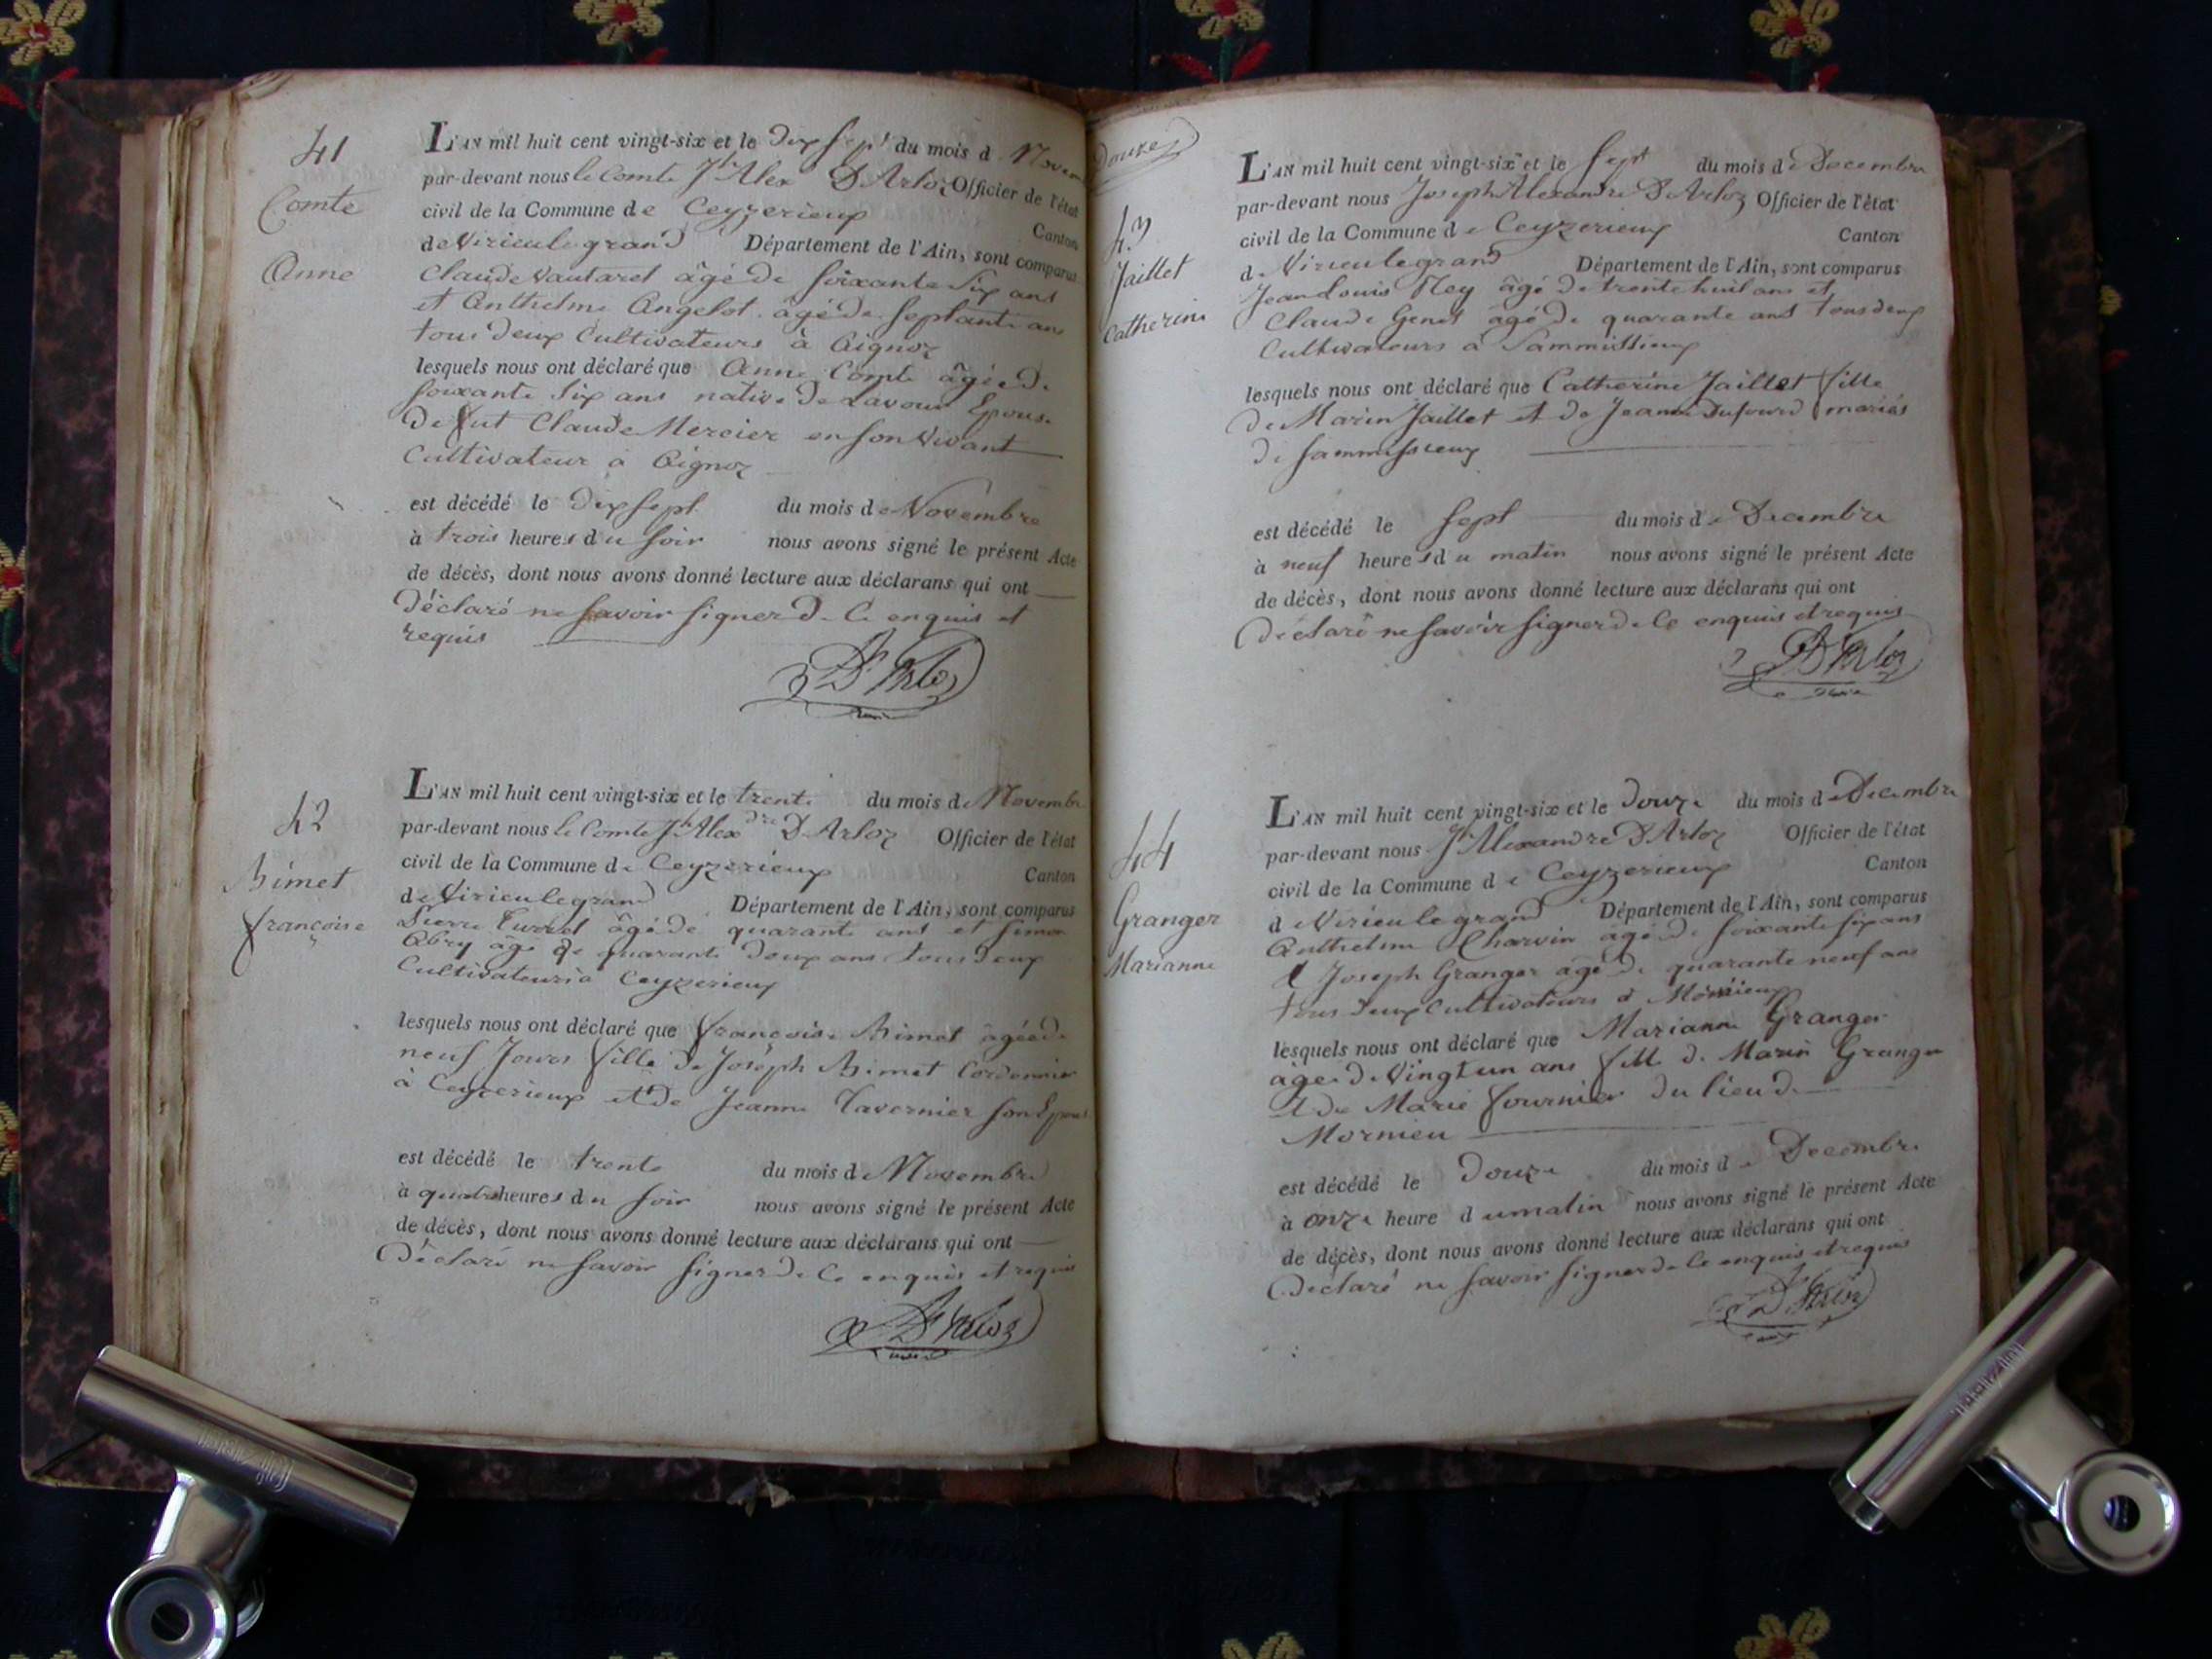 41
Comte
Anne
L'AN mil huit cent vingt-six et le dix sept du mois d Novem
par-devant nous le Comte Jh Alex D'Arloz Officier de l'état
civil de la Commune de Ceyzerieux Canton
de Virieulegrand Département de l'Ain, sont comparus
Claude Vautaret âgé de soixante six ans
et Anthelme Angelot âgé de septante ans
tous deux Cultivateurs à Aignoz
lesquels nous ont déclaré que Anne Comte âgée de
soixante six ans native de Lavour Epouse
de fut Claude Mercier en son vivant
Cultivateur a Aignoz
est décédé le dix sept du mois de Novembre
à trois heures du soir nous avons signé le présent Acte
de décès, dont nous avons donné lecture aux déclarans qui ont
Déclaré ne savoir signer de ce enquis et
requis
D'Arloz
42
Bimet
françoise
L'AN mil huit cent vingt-six et le trente du mois de Novembre
par-devant nous le Comte Jh Alexdre D'Arloz Officier de l'état
civil de la Commune de Ceyzerieux Canton
de Virieulegrand Département de l'Ain, sont comparus
Pierre âgé de quarante ans et Simon
Abry âgé de quarante deux ans tous deux
Cultivateurs à Ceyzerieux
lesquels nous ont déclaré que françoise Bimet âgée de
neuf Jours fille de Joseph Bimet Cordonnier
à Ceyzerieux et de Jeanne Tavernier son Epouse
est décédé le trente du mois de Novembre
à quatre heures du soir nous avons signé le présent Acte
de décès, dont nous avons donné lecture aux déclarans qui ont
Déclaré ne savoir signer de ce enquis et requis
D'Arloz
Douze
43
Jaillet
Catherine
L'AN mil huit cent vingt-six et le sept du mois de Decembre
par-devant nous Joseph Alexandre D'Arloz Officier de l'état
civil de la Commune de Ceyzerieux Canton
de Virieulegrand Département de l'Ain, sont comparus
Jean Louis Rey âgé de trente huit ans et
Claude Genet agé de quarante ans tous deux
Cultivateurs a Sammissieux
lesquels nous ont déclaré que Catherine Jaillet fille
de Marin Jaillet et de Jeanne Dufour mariés
de Sammissieux
est décédé le sept du mois de Decembre
à neuf heures du matin nous avons signé le présent Acte
de décès, dont nous avons donné lecture aux déclarans qui ont
Déclaré ne savoir signer de Ce enquis et requis
D'Arloz
44
Granger
Marianne
L'AN mil huit cent vingt-six et le Douze du mois de Decembre
par-devant nous Jh Alexandre D'Arloz Officier de l'état
civil de la Commune de Ceyzerieux Canton
de Virieulegrand Département de l'Ain, sont comparus
Anthelme Charvin âgé de soixante six ans
et Joseph Granger âgé de quarante neuf ans
tous deux Cultivateurs à Mornieux
lesquels nous ont déclaré que Marianne Granger
âgée de Vingt un ans fille de Marin Granger
et de Marie fournier du lieu de
Mornieu
est décédé le Douze du mois de Decembre
à onze heure du matin nous avons signé le présent Acte
de décès, dont nous avons donné lecture aux déclarans qui ont
Déclaré ne savoir signer de Ce enquis et requis
D'Arloz